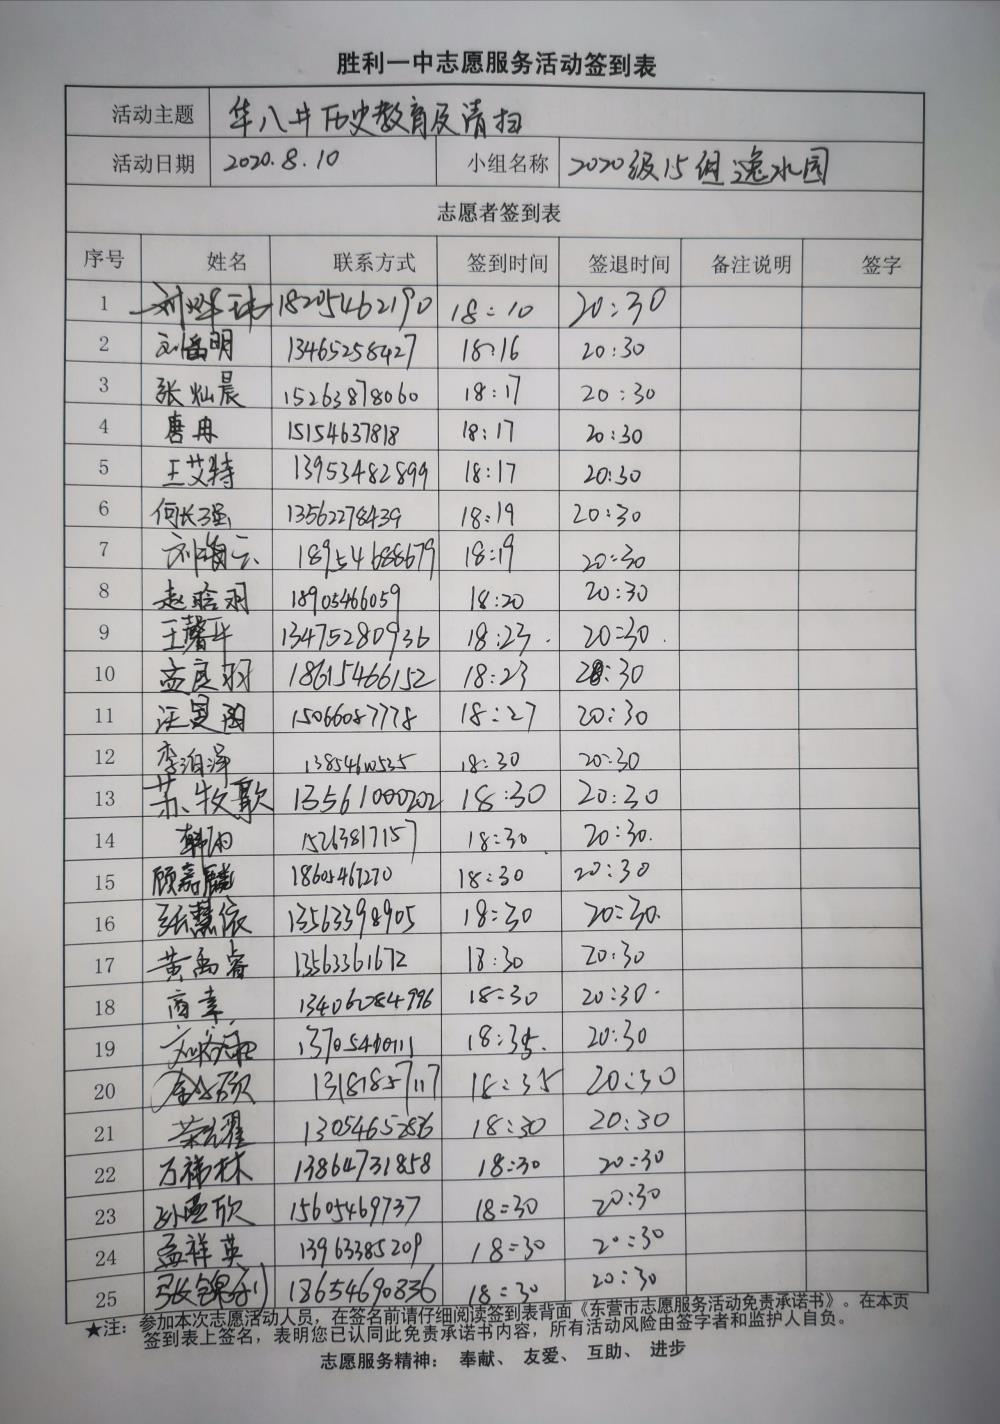 胜利一中志愿服务活动签到表
活动主题 华八井历史教育及清扫
活动日期 2020.8.10 小组名称 2020级15组逸水园
志愿者签到表
序号 姓名 联系方式 签到时间 签退时间 备注说明 签字
1 18205462190 18:10 20:30
2 刘岳明 13465258427 18:16 20:30
3 张灿晨 15263878060 18:17 20:30
4 唐冉 15154637818 18:17 20:30
5 王艾特 13953482899 18:17 20:30
6 何长强 13562278439 18:19 20:30
7 18954688679 18:19 20:30
8 赵晗羽 18905466059 18:20 20:30
9 王馨年 13475280936 18:23. 20:30.
10 孟良羽 18615466152 18:23 20:30
11 15066087778 18:27 20:30
12 李泊泽 18:30 20:30
13 苏牧歌 13561000202 18:30 20:30
14 韩雨 15263817157 18:30 20:30.
15 顾嘉麟 18605467270 18:30 20:30
16 张慧依 13563398905 18:30 20:30.
17 黄禹睿 13563361672 18:30 20:30
18 商素 13406284996 18:30 20:30.
19 18:35. 20:30
20 13181857117 18:35 20:30
21 荣耀 13054652836 18:30 20:30
22 万祎林 13864731858 18:30 20:30
23 15605469737 18:30 20:30
24 孟祥英 13963385209 18:30 20:30
25 18654690836 18:30 20:30
★注: 参加本次志愿活动人员,在签名前请仔细阅读签到表背面《东营市志愿服务活动免责承诺书》。在本页
签到表上签名,表明您已认同此免责承诺书内容,所有活动风险由签字者和监护人自负。
志愿服务精神: 奉献、友爱、互助、进步